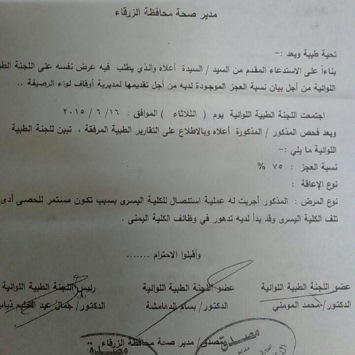 مدير صحة محافظة الزرقاء
تحية طيبة وبعد :-
بناءاً على الاستدعاء المقدم من السيد / السيدة أعلاه والذي يطلب فيه عرض نفسه على اللجنة
اللوائية من أجل بيان نسبة العجز الموجودة لديه من أجل تقديمها لمديرية أوقاف لواء الرصيفة ..
اجتمعت اللجنة الطبية اللوائية يوم ( الثلاثاء ) الموافق : ١٦/ ٦ / ٢٠١٥
وبعد فحص المذكور / المذكورة أعلاه وبالاطلاع على التقارير الطبية المرفقة ، تبين للجنة الطبية
اللوائية ما يلي :-
نسبة العجز : ٧٥ %
نوع الإعاقة :
نوع المرض : المذكور أجريت له عملية استئصال للكلية اليسرى بسبب تكون مستمر للحصى أدى
تلف الكلية اليسرى وقد بدأ لديه تدهور في وظائف الكلية اليمنى .
وأقبلوا الاحترام .......
عضو اللجنة الطبية اللوائية عضو اللجنة الطبية اللوائية رئيس اللجنة الطبية اللوائية
الدكتور/ محمد المومني الدكتور/ بسام الدعامشة الدكتور/ جمال عبد
مصدق/ مدير صحة محافظة الزرقاء
مصدق